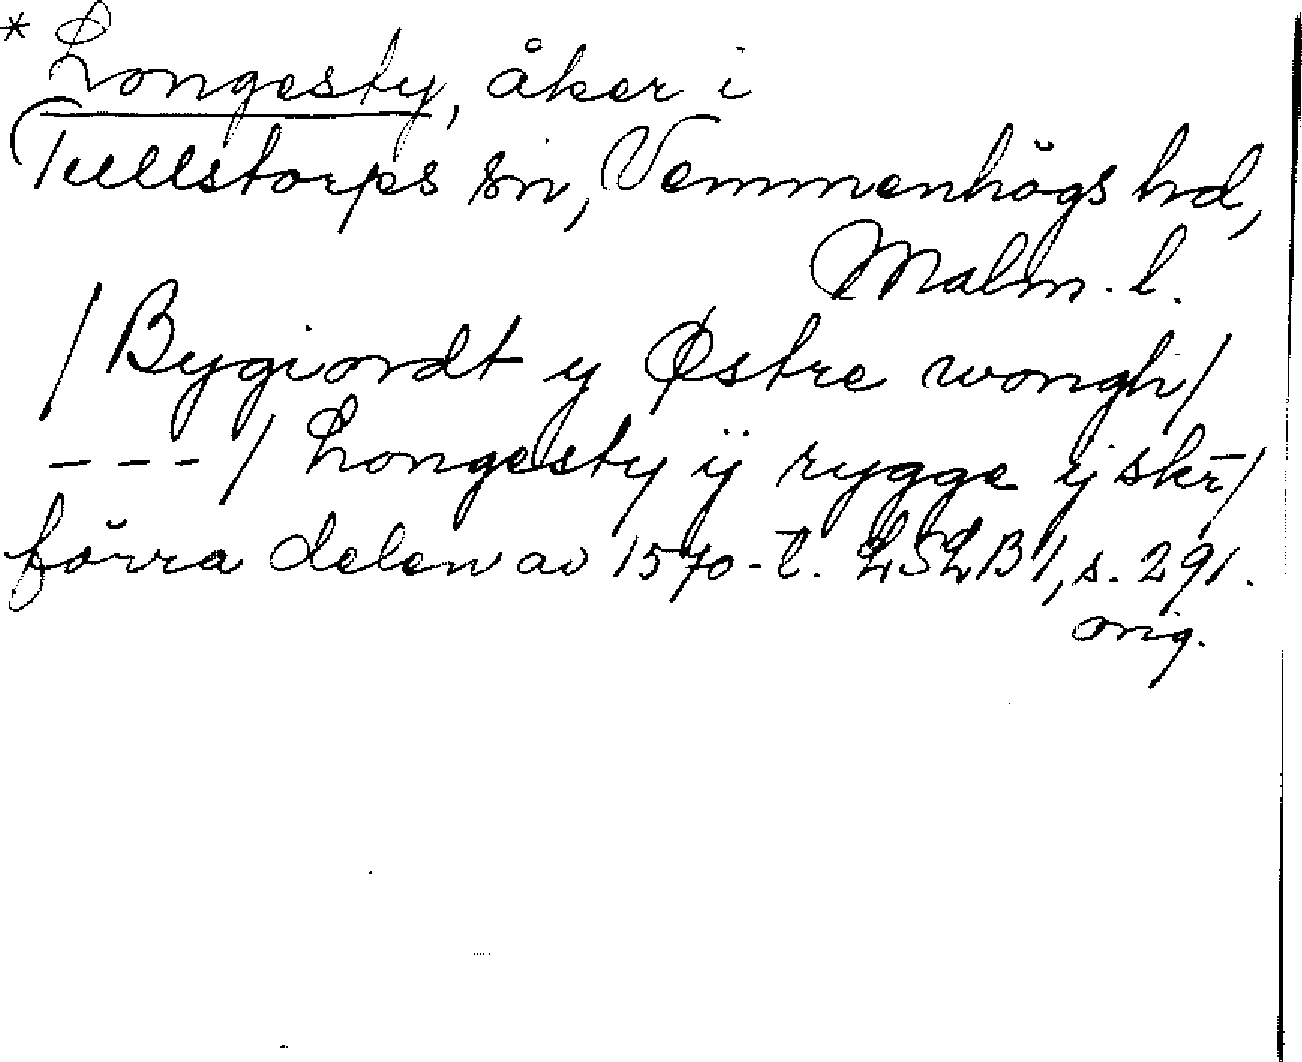 * Longesty, åker i
Tullstorps sn, Vemmenhögs hd,
Malm. l.
/ Bygiordt y Østre wongh /
- - - / Longesty ÿ rygge ij skr /
förra delen av 1570-t. LSLB 1, s. 291.
orig.